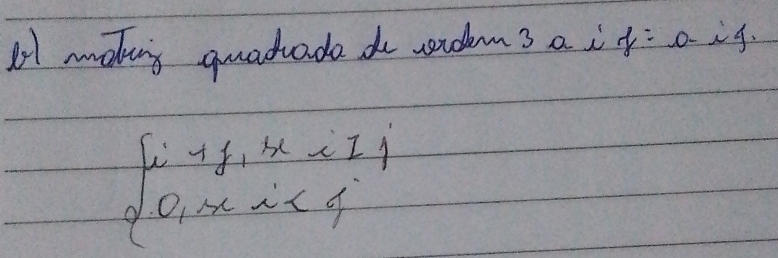 b) matriz quadrada de ordem 3 a i j = a i j.
{ i + j, se i ≥ j
0, se i < j